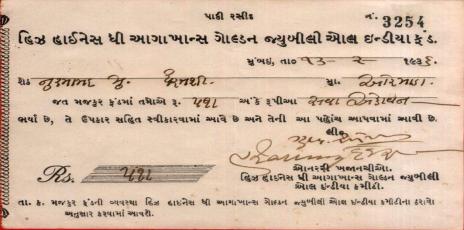 પાકી રસીદ
નં. 3254
હિઝ હાઈનેસ ધી આગાખાન્સ ગોલ્ડન જ્યુબીલી ઑલ ઇન્ડીયા ફંડ.
મુંબઇ, તા૦ ૧૩ - ૨ - ૧૯૩૬
શેઠ મુ. પ્રેમજી
જત મજકુર ફંડમાં તમોએ રૂ. ૫૧। અંકે રૂપીઆ સવા એકાવન
ભર્યા છે, તે ઉપકાર સહિત સ્વીકારવામાં આવે છે અને તેની આ પહોંચ આપવામાં આવી છે.
લી૦
Rs. ૫૧।
ઑનરરી ખજાનચીઓ.
હિઝ હાઈનેસ ધી આગાખાન્સ ગોલ્ડન જ્યુબીલી
ઑલ ઇન્ડીયા કમીટી.
તા. ક. મજકુર ફંડની વ્યવસ્થા હિઝ હાઈનેસ ધી આગાખાન્સ ગોલ્ડન જ્યુબીલી ઑલ ઇન્ડીયા કમીટીના ઠરાવો
અનુસાર કરવામાં આવશે.